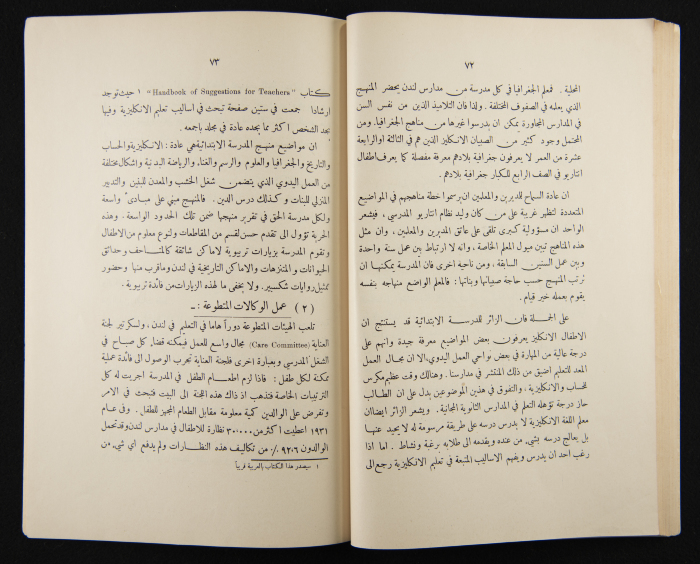 ٧٢
المحلية . فمعلم الجغرافيا في كل مدرسة من مدارس لندن يحضر المنهج
الذي يعلمه في الصفوف المختلفة . ولذا فان التلاميذ الذين من نفس السن
في المدارس المجاورة يمكن ان يدرسوا غيرها من مناهج الجغرافيا. ومن
المحتمل وجود كثير من الصبيان الانكليز الذين هم في الثالثة او الرابعة
عشرة من العمر لا يعرفون جغرافية بلادهم معرفة مفصلة كما يعرف اطفال
انتاريو في الصف الرابع للكبار جغرافية بلادهم.
ان عادة السماح للمديرين والمعلمين ان يرسموا خطة مناهجهم في المواضيع
المتعددة لتظهر غريبة على من كان وليد نظام انتاريو المدرسي ، فيشعر
الواحد ان مسؤولية كبرى تلقى على عاتق المديرين والمعلمين ، وان مثل
هذه المناهج تبين ميول المعلم الخاصة ، وانه لا ارتباط بين عمل سنة واحدة
وبين عمل السنين السابقة ، ومن ناحية اخرى فان المدرسة يمكنها ان
ترتب المنهج حسب حاجة صبيانها وبناتها : فالمعلم الواضع منهاجه بنفسه
يقوم بعمله خير قيام .
على الجملة فان الزائر للمدرسة الابتدائية قد يستنتج ان
الاطفال الانكليز يعرفون بعض المواضيع معرفة جيدة وانهم على
درجة عالية من المهارة في بعض نواحي العمل اليدوي، الا ان مجال العمل
المعد للتعليم اضيق من ذلك المنتشر في مدارسنا . وهنالك وقت عظيم مكرس
للحساب والانكليزية ، والتفوق في هذين الموضوعين يدل على ان الطالب
حاز درجة تؤهله التعلم في المدارس الثانوية المجانية . ويشعر الزائر ايضا ان
معلم اللغة الانكليزية لا يدرس درسه على طريقة مرسومة له لا يحيد عنها
بل يعالج درسه بشيء من عنده ويقدمه الى طلابه رغبة ونشاط . اما اذا
رغب احد ان يدرس ويفهم الاساليب المتبعة في تعليم الانكليزية رجع الى
٧٣
كتاب "Handbook of Suggestions for Teachers" ١ حيث توجد
ارشادا جمعت في ستين صفحة تبحث في اساليب تعليم الانكليزية وفيها
يجد الشخص اكثر مما يجده عادة في مجلد باجمعه .
ان مواضيع منهج المدرسة الابتدائية هي عادة : الانكليزية والحساب
والتاريخ والجغرافيا والعلوم والرسم والغناء والرياضة البدنية واشكال مختلفة
من العمل اليدوي الذي يتضمن شغل الخشب والمعدن للبنين والتدبير
المنزلي للبنات وكذلك درس الدين . فالمنهج مبني على مبادىء واسعة
ولكل مدرسة الحق في تقرير منهجها ضمن تلك الحدود الواسعة . وهذه
الحرية تؤول الى تقدم حسن لقسم من المقاطعات ولنوع معلوم من الاطفال
وتقوم المدرسة بزيارات تربيوية لاماكن شائقة كالمتاحف وحدائق
الحيوانات و المتنزهات والاماكن التاريخية في لندن وماقرب منها وحضور
تمثيل روايات شكسبير. ولا يخفى ما لهذه الزيارات من فائدة تربيوية .
( ٢ ) عمل الوكالات المتطوعة : ــ
تلعب الهيئات المتطوعة دوراً هاما في التعليم في لندن ، ولسكرتير لجنة
العناية (Care Committee) مجال واسع للعمل فيمكنه قضاء كل صباح في
الشغل المدرسي وبعبارة اخرى فلجنة العناية تجرب الوصول الى فائدة عملية
ممكنة لكل طفل : فاذا لزم اطعام الطفل في المدرسة اجريت له كل
الترتيبات الخاصة فتذهب اذ ذاك هذه اللجنة الى البيت فتبحث في الامر
وتفرض على الوالدين كمية معلومة مقابل الطعام المجهز للطفل . وفي عام
١٩٣١ اعطيت اكثر من ٣٠،٠٠٠ نظارة للاطفال في مدارس لندن وقد تحمل
الوالدون ٩٢٫٦ ٪ من تكاليف هذه النظارات ولم يدفع اي شيء من
١ سيصدر هذا الكتاب بالعربية قريباً